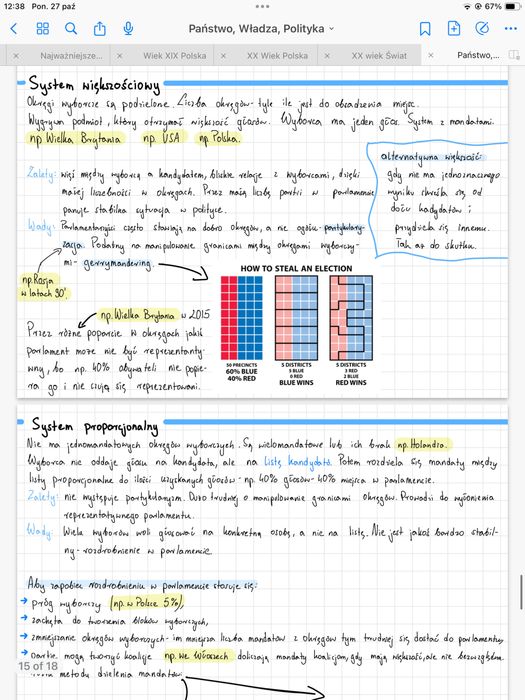 12:38 Pon. 27 paź
67%
Państwo, Władza, Polityka
Najważniejsze...
Wiek XIX Polska
XX Wiek Polska
XX wiek Świat
Państwo,...
System większościowy
Okręgi wyborcze są podzielone. Liczba okręgów - tyle ile jest do obsadzenia miejsc.
Wygrywa podmiot, który otrzymał większość głosów. Wyborca ma jeden głos. System z mandatami.
np Wielka Brytania np. USA np. Polska.
Zalety: więź między wyborcą a kandydatem, bliskie relacje z wyborcami, dzięki
małej liczebności w okręgach. Przez małą liczbę partii w parlamencie
panuje stabilna sytuacja w polityce.
Wady: Parlamentarzyści często stawiają na dobro okręgów, a nie ogółu - partykulary-
zacja. Podatny na manipulowanie granicami między okręgami wyborczy-
mi - gerrymandering.
alternatywna większość:
gdy nie ma jednoznacznego
wyniku skreśla się od
dołu kandydatów i
przydziela się innemu.
Tak aż do skutku.
np. Rosja
w latach 90'.
np. Wielka Brytania w 2015
Przez różne poparcie w okręgach jakiś
parlament może nie być reprezentaty-
wny, bo np. 40% obywateli nie popie-
ra go i nie czują się reprezentowani.
HOW TO STEAL AN ELECTION
50 PRECINCTS
60% BLUE
40% RED
5 DISTRICTS
5 BLUE
0 RED
BLUE WINS
5 DISTRICTS
3 RED
2 BLUE
RED WINS
System proporcjonalny
Nie ma jednomandatowych okręgów wyborczych. Są wielomandatowe lub ich brak np. Holandia.
Wyborca nie oddaje głosu na kandydata, ale na listę kandydatów. Potem rozdziela się mandaty między
listy proporcjonalne do ilości uzyskanych głosów - np. 40% głosów - 40% miejsca w parlamencie.
Zalety: nie występuje partykularyzm. Dużo trudniej o manipulowanie granicami okręgów. Prowadzi do wyłonienia
reprezentatywnego parlamentu.
Wady: Wielu wyborców woli głosować na konkretną osobę, a nie na listę. Nie jest jakoś bardzo stabil-
ny - rozdrobnienie w parlamencie.
Aby zapobiec rozdrobnieniu w parlamencie stosuje się:
→ próg wyborczy (np. w Polsce 5%),
→ zachęta do tworzenia bloków wyborczych,
→ zmniejszanie okręgów wyborczych - im mniejsza liczba mandatów z okręgów tym trudniej się dostać do parlamentu,
→ partie mogą tworzyć koalicje np. we Włoszech doliczają mandaty koalicjom, gdy mają większość, ale nie bezwzględną.
metody dzielenia mandatów
15 of 18